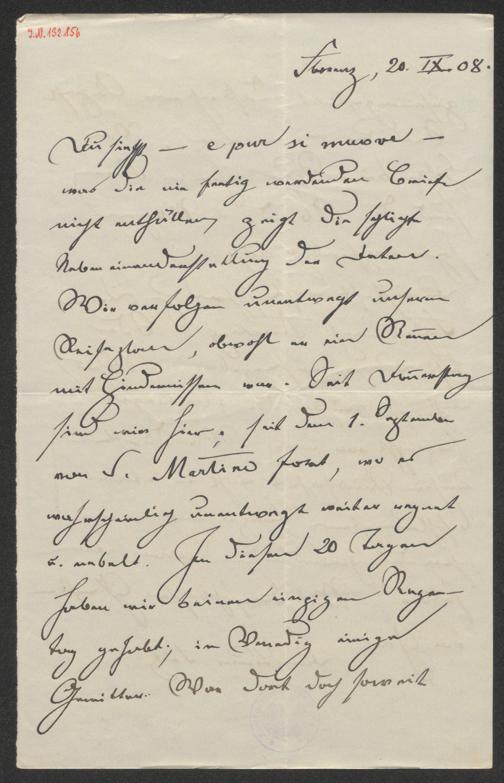 J.N. 192.156
Florenz, 20. IX. 08.
Du siehst — e pur si muove —
was die nie fertig werdenden Briefe
nicht enthüllen, zeigt die schlichte
Nebeneinanderstellung der Daten.
Wir verfolgen unentwegt unseren
Reiseplan, obwohl es ein Rennen
mit Hindernissen war. Seit Donnerstag
sind wir hier, seit dem 1. September
von S. Martino fort, wo es
wahrscheinlich unentwegt weiter regnet
u. nebelt. In diesen 20 Tagen
haben wir keinen einzigen Regen-
tag gehabt; in Venedig einige
Gewitter. War dort doch soweit